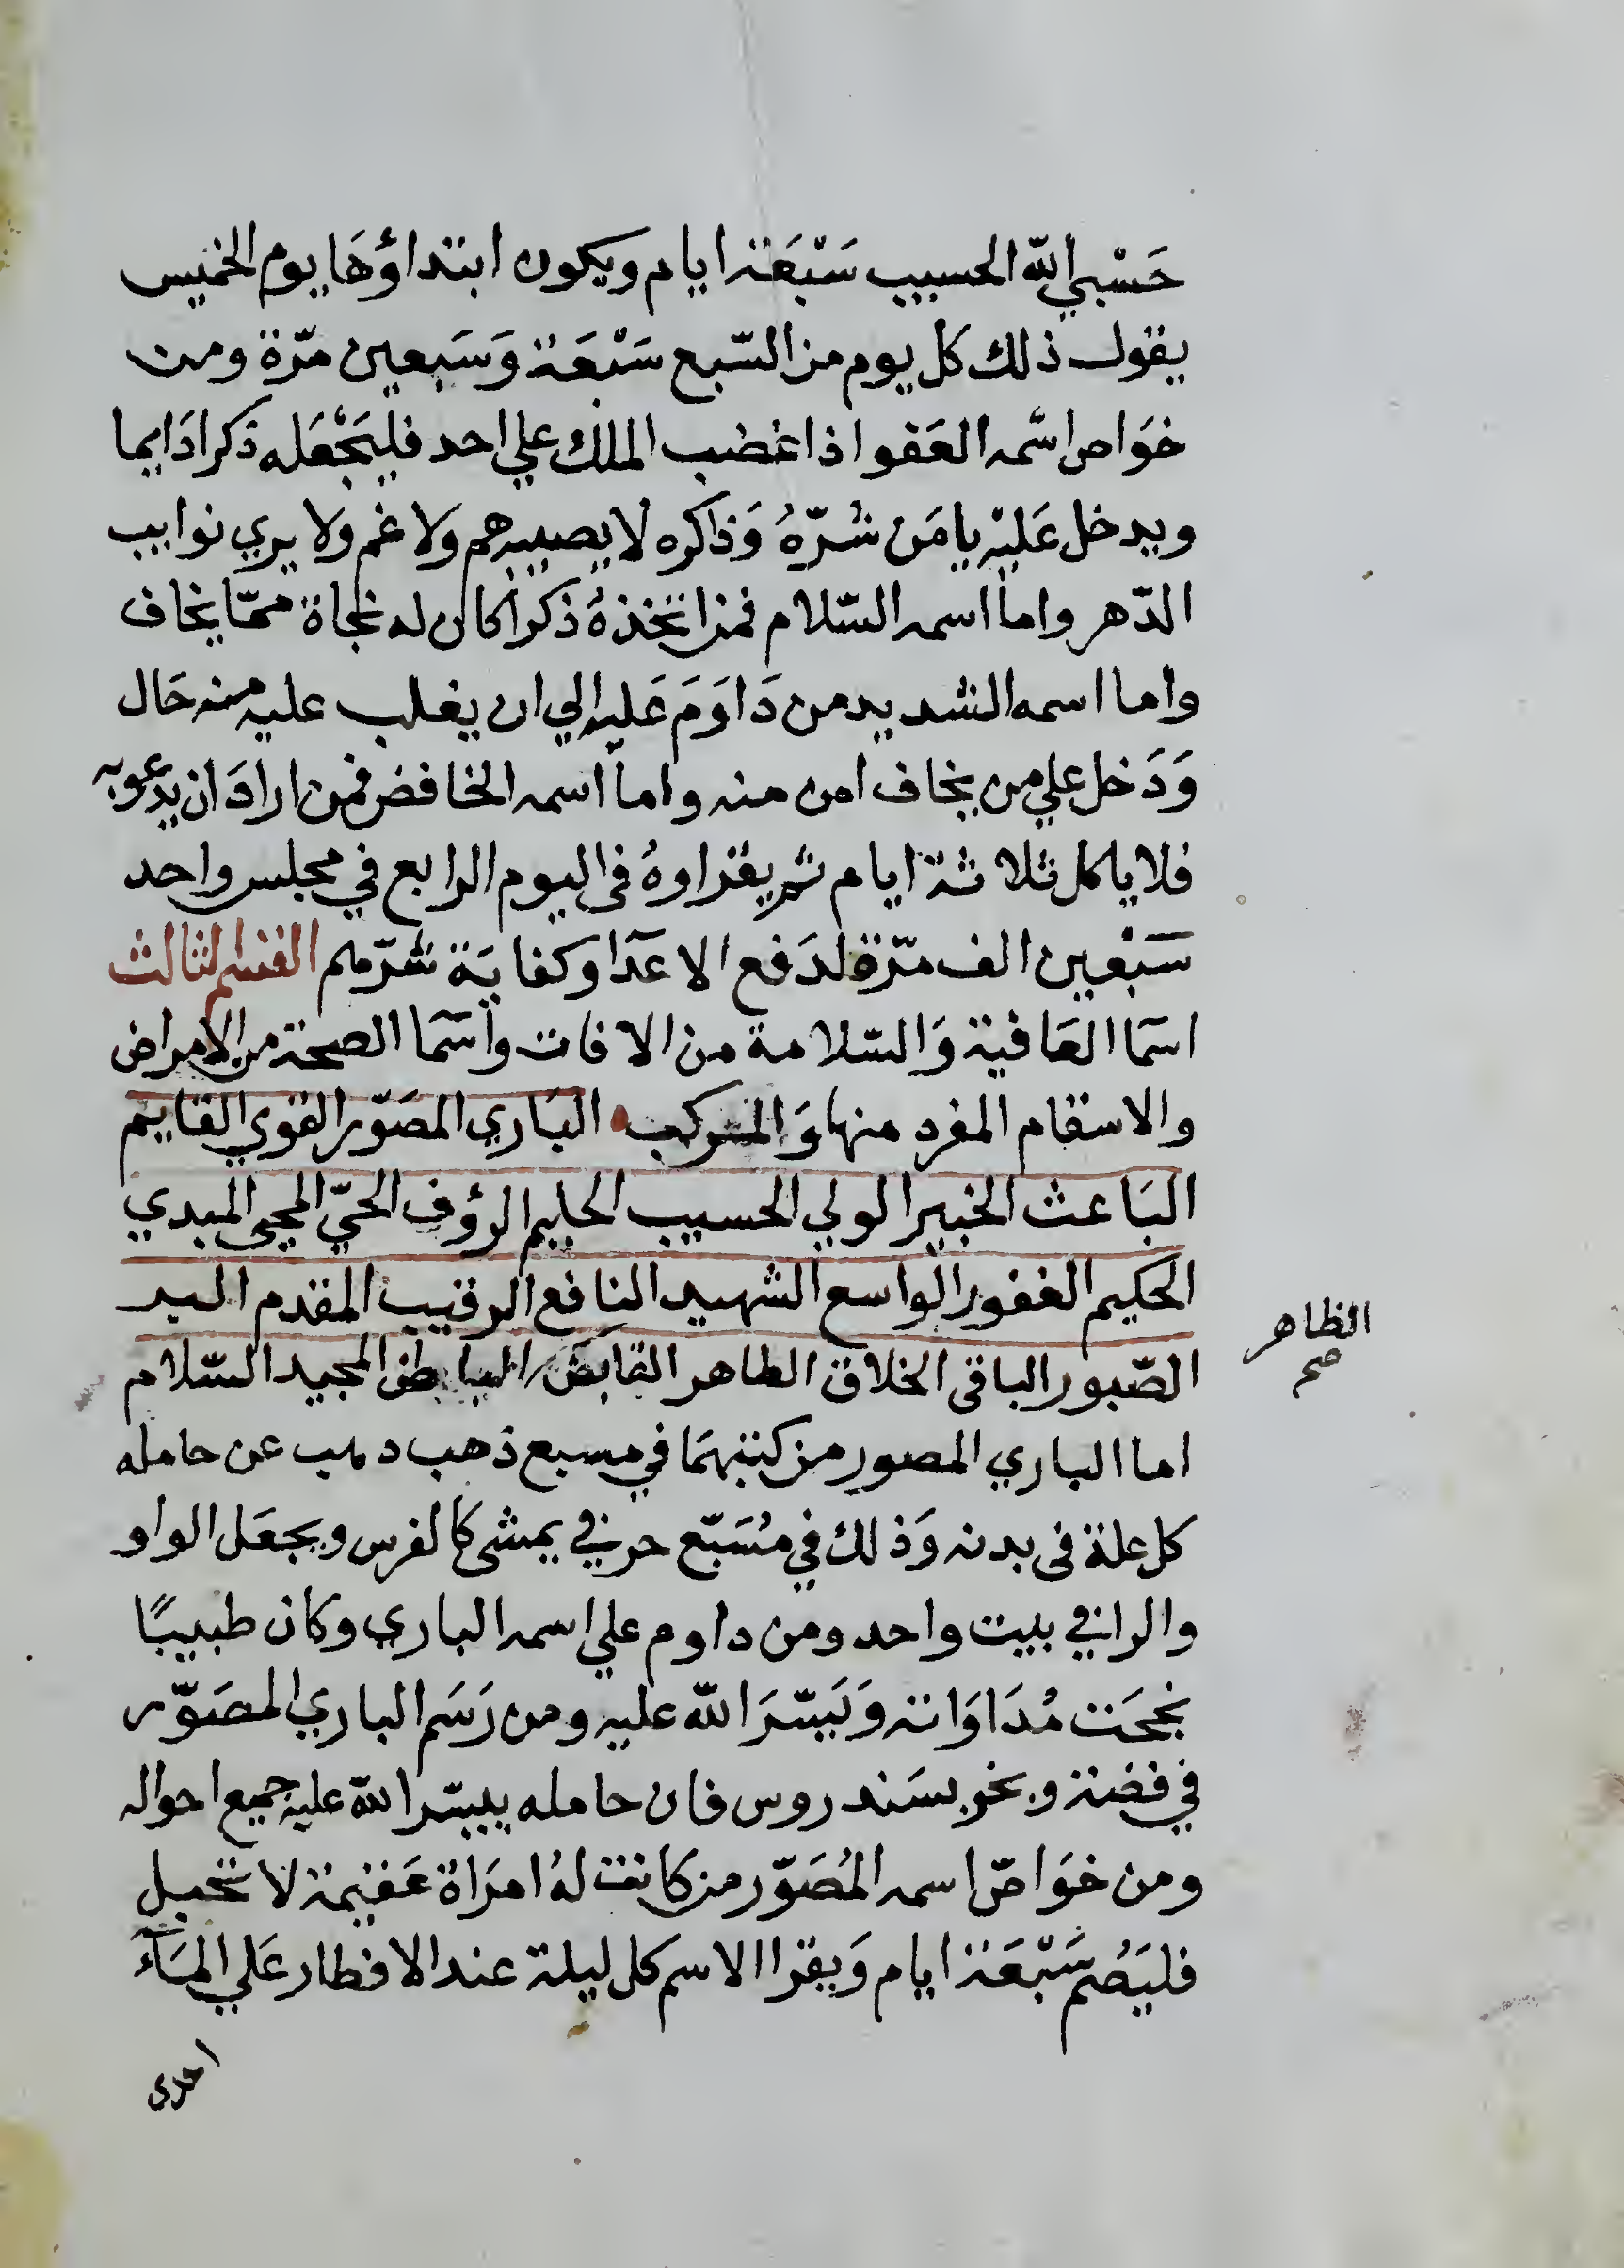 حَسْبِيَ الله الحسيب سَبْعَة ايام ويكون ابتداؤهَا يوم الخميس
يقول ذلك كل يوم من السّبع سَبْعَة وَسَبعين مرّة ومن
خوَاص اسْمه العَفو اذا غضب الملك علي احد فليَجْعَله ذكرا دَايما
ويدخل عَليْه يامَن شرّهُ وَذاكره لا يصيبه هم وَلا غم ولا يري نوايب
الدّهر واما اسمه السّلام فمن اتخذهُ ذكراً كان له نجاة ممّا يخاف
واما اسمه الشديد من دَاوَمَ عَليه الي ان يغلب عليه منه حَال
وَدَخل علي من يخاف امن منه واما اسمه الخافض فمن ارادَ ان يدعو به
فلا ياكل ثلاثة ايام ثم يقراوهُ فى اليوم الرابع في مجلس واحد
سَبْعين الف مرّة لدَفع الاعدآ وكفايَة شرّهم القسم الثالث
اسمآ العَافية وَالسّلامة من الافات واسمآ الصحة من الامراض
والاسقام المفرد منها وَالمركب البَاري المصَوّر القوي القايم
البَاعث الخبير الولي الحسيب الحليم الرؤف الحيّ المحيى المبدي
الحكيم الغفور الواسع الشهيد النافع الرقيب المقدم البر
الصّبور الباقى الخلاق الطاهر القابَض الباطن المجيد السّلام
الظاهر
صح
اما الباري المصور من كتبهمَا في مسبع ذهب عن حامله
كل علة فى بدنه وَذلك في مُسَبّع حرفي يمشى كالفرس ويجعَل الواو
والرا في بيت واحد ومن داوم علي اسمه الباري وكان طبيبًا
نجحَت مُدَاوَاته وَيَسّرَ الله عليه ومن رَسَم الباري المصَوّر
في فضة وبخر بسَندروس فان حامله ييسّر الله عليه جميع احواله
ومن خوَاصّ اسمه المُصَوّر من كانت لهُ امرَاة عَقيمة لا تحبل
فليَصُم سَبْعَة ايام وَيقرا الاسم كل ليلة عند الافطار عَلي المَآء